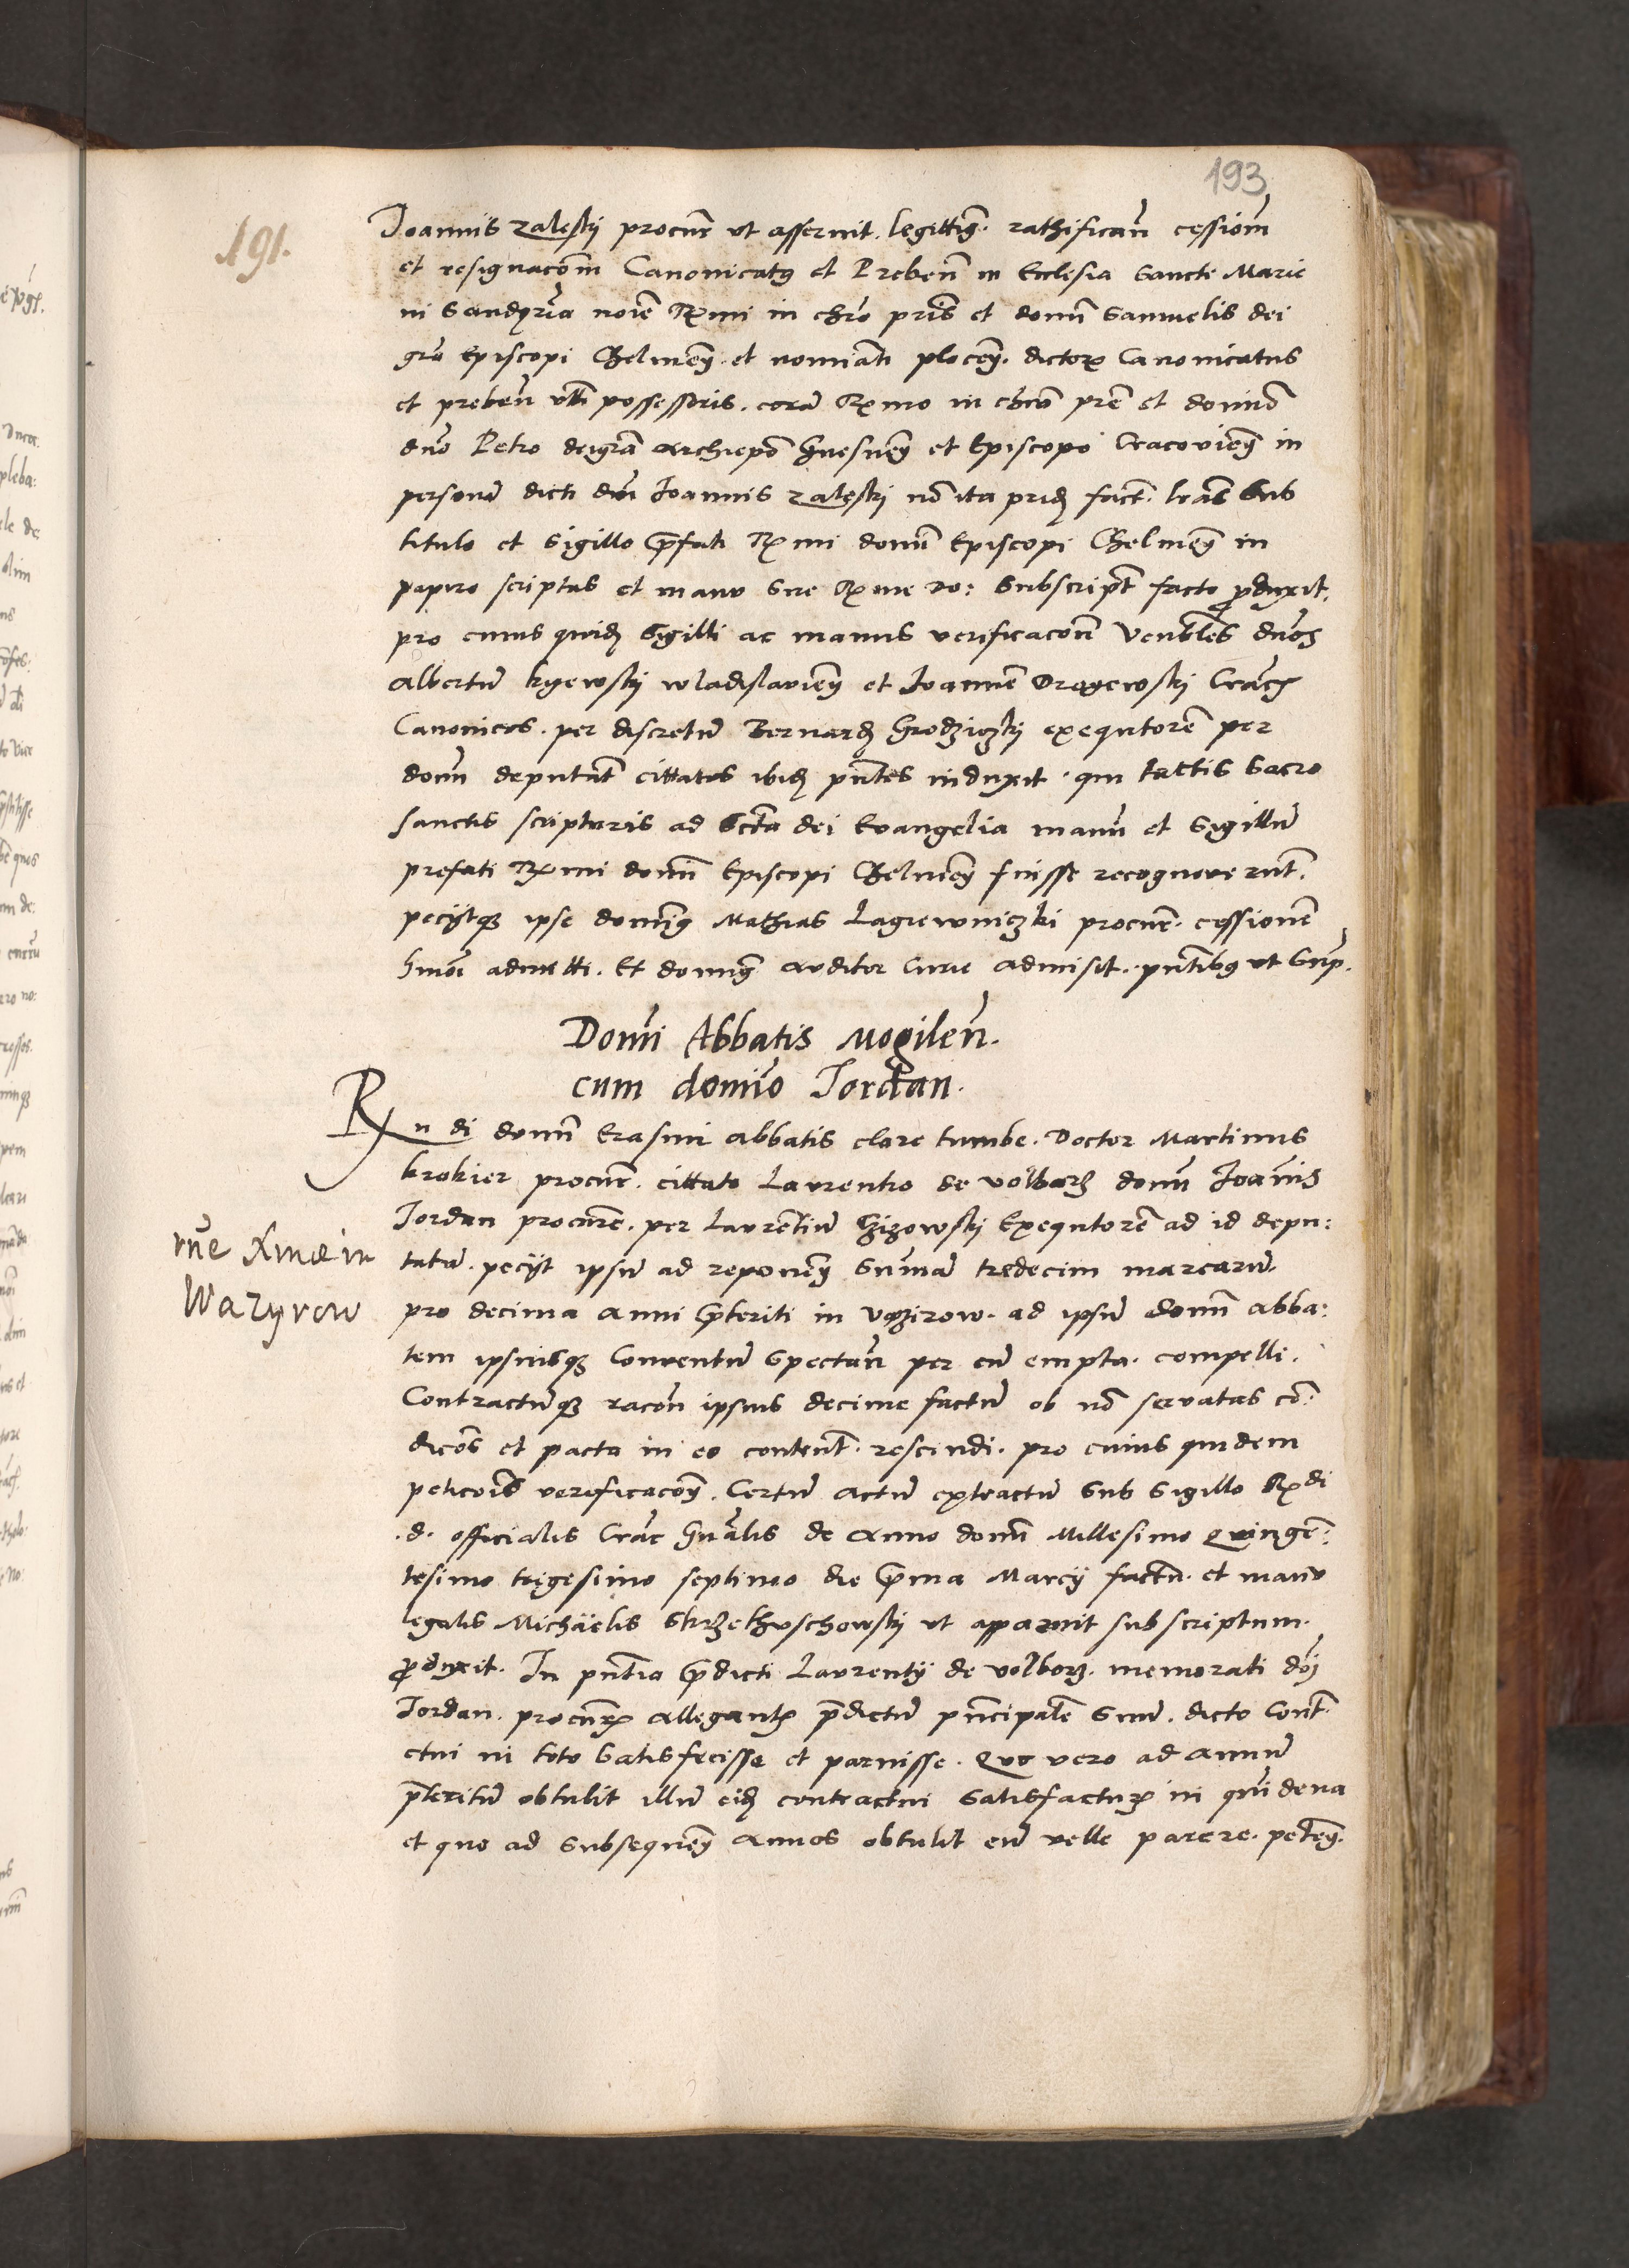 193
191.
Joannis Zalesky procur ut asseruit legittig. rathifican cessiom
et resignacom Canonicatq et Preben in Ecclesia Sancti Marie
in Sandomiria noie Rxmi in chro pris et domni Samuelis dei
gra Episcopi Chelmen et nominati plocen. dictorx Canonicatus
et preben vlti possessoris. cora Rxmo in chro pre et domino
dno Petro dei gra Archiepo Gnesnen et Episcopo Cracovien in
persona dicti dni Joannis Zalesky no ita prid fact. lras Sub
titulo et Sigillo prefati Rxmi domni Episcopi Chelmen in
papiro scriptas et manu Sue Rxme do: Subscript facto produxit.
pro cuius quid Sigilli ac manus verificacon Venbles dnos
Albertu kyewsky wladislavien et Joanne Dragewsky Crac
Canonicos. per discretu Bernard Grodziczky exequtore per
domn deputat cittatos ibid pntes induxit. qui tactis Sacro
sanctis scripturis ad Scta dei Evangelia manu et Sigillu
prefati Rxmi domni Episcopi Chelmen fuisse recognoverunt.
pecijtq ipse dominq Mathias Lagiewniczki procur. cessione
hmoi admitti. Et dominq auditor Curie admisit. pntibq ut Sup.
Domi Abbatis Mogilen.
cum domino Jordan.
Rxndi domn Erasmi abbatis clare tumbe. Doctor Martinus
krokier procur. cittato Laurentio de volborz domn Joanis
Jordan procure. per Laurentiu Gizowsky Exequtore ad id depu:
rne Xmae in
Wazyrow
tatu. pecijt ipsu ad reponen Suma tredecim marcaru
pro decima anni preteriti in Vyazirow. ad ipsu domn abba:
tem ipsiusq Conventu Spectan per eu empta. compelli.
Contractuq racon ipsius decime factu ob no servatas co:
dicos et pacta in eo content. rescindi. pro cuius quidem
peticois verificacon. Certu actu extractu Sub Sigillo Rxdi
.d. officialis Crac Gnralis de Anno domn Millesimo Quingen:
tesimo trigesimo septimo die prima Marcij factu. et manu
legalis Michaelis Skrzethuschowsky ut apparuit subscriptum.
produxit. In pntia predicti Laurentij de volborz. memorati doi
Jordan. procurx allegantx predictu principale Suu. dicto Cont:
ctui in toto Satisfecisse et paruisse. Quo vero ad annu
preteritu obtulit illu eid contractui Satisfacturx in quindena
et quo ad Subsequen annos obtulit eu velle parere. peten.